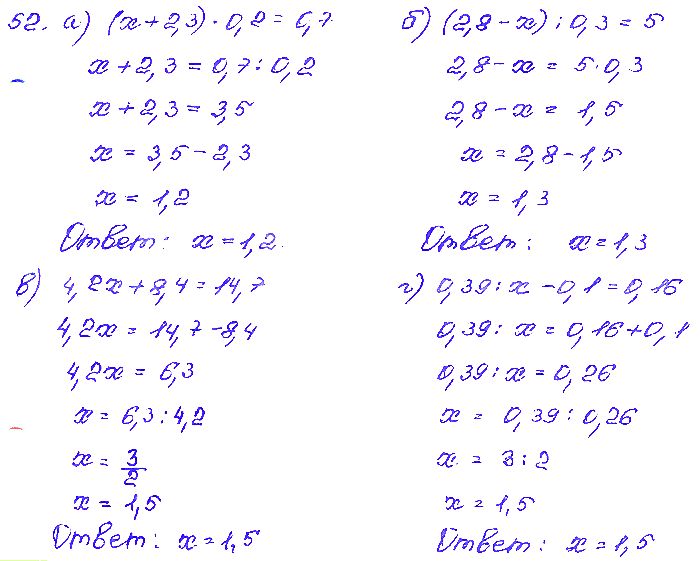 52. а) (x+2,3)·0,2=0,7
x+2,3=0,7:0,2
x+2,3=3,5
x=3,5-2,3
x=1,2
Ответ: x=1,2.
б) (2,8-x):0,3=5
2,8-x=5·0,3
2,8-x=1,5
x=2,8-1,5
x=1,3
Ответ: x=1,3
в) 4,2x+8,4=14,7
4,2x=14,7-8,4
4,2x=6,3
x=6,3:4,2
x=3/2
x=1,5
Ответ: x=1,5
г) 0,39:x-0,1=0,16
0,39:x=0,16+0,1
0,39:x=0,26
x=0,39:0,26
x=3:2
x=1,5
Ответ: x=1,5